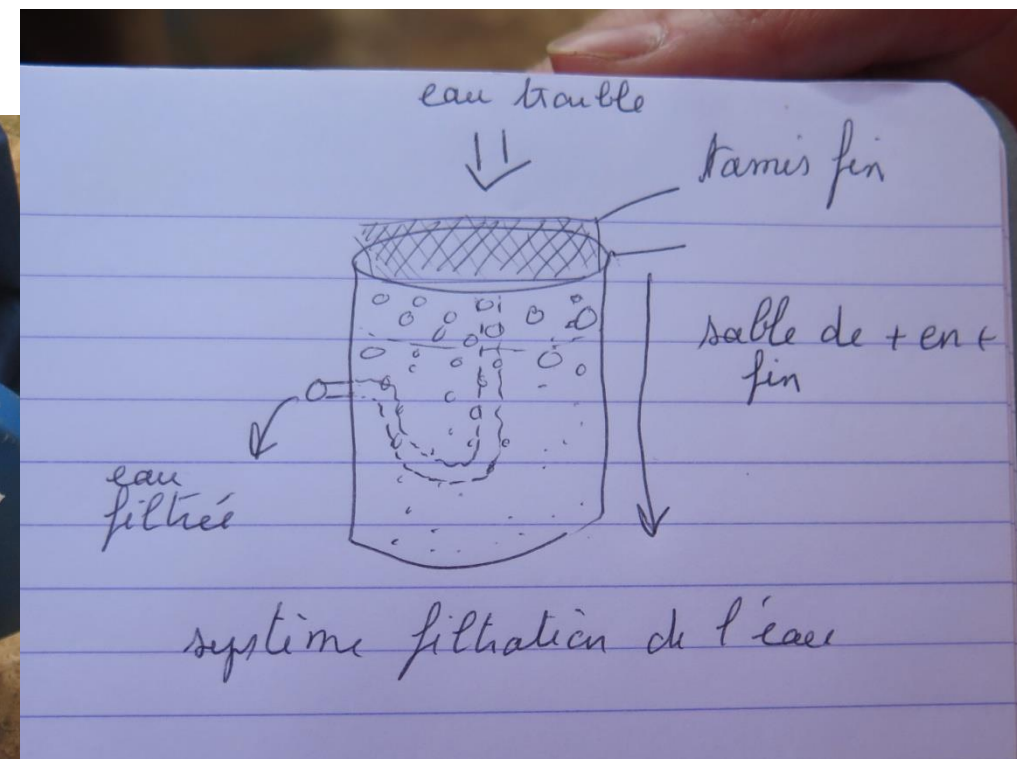 eau trouble
tamis fin
sable de + en +
fin
eau
filtrée
système filtration de l'eau